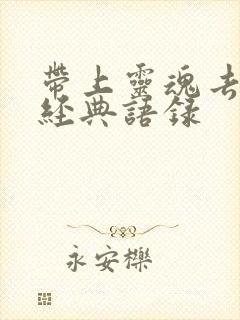 帶上靈魂去
經典語錄
永安櫟